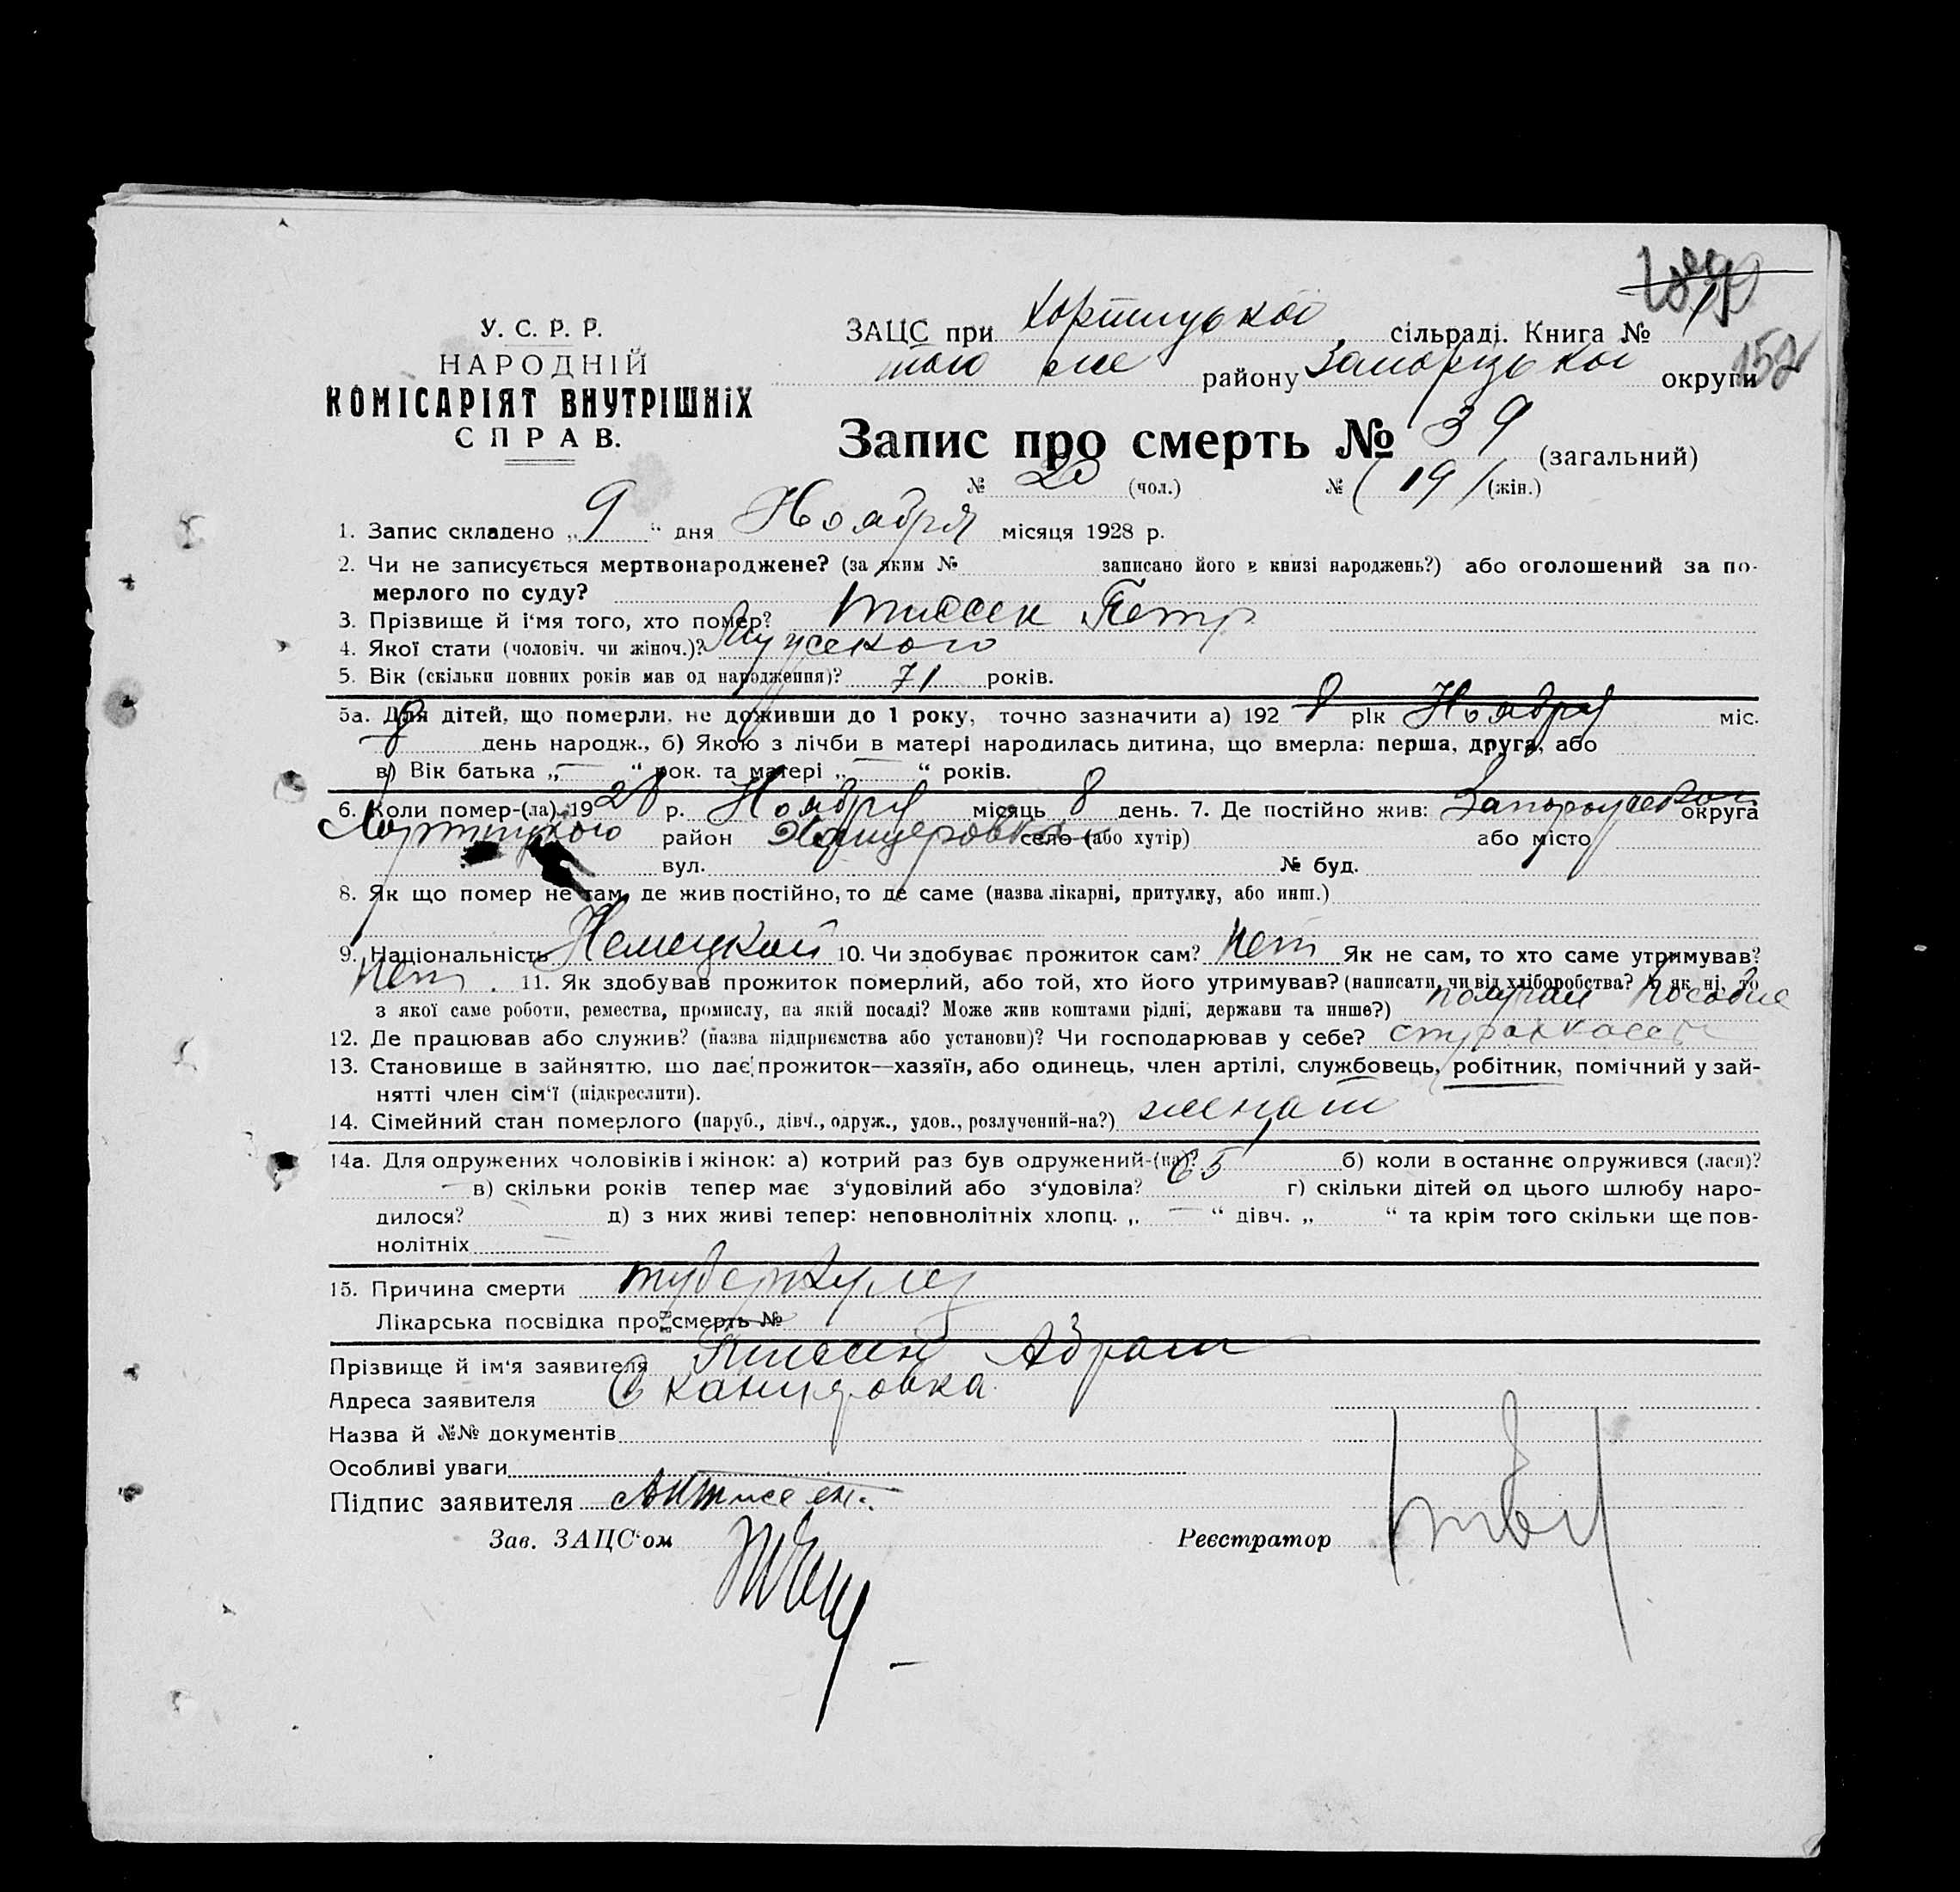 У. С. Р. Р.
НАРОДНІЙ
КОМІСАРІЯТ ВНУТРІШНІХ
СПРАВ.
ЗАЦС при Хортицької сільраді. Книга № 1
того же району Запорізької округи
Запис про смерть № 39 (загальний)
№ 20 (чол.) № (19) (жін.)
1. Запис складено „ 9 “ дня Ноября місяця 1928 р.
2. Чи не записується мертвонароджене? (за яким № записано його в книзі народжень?) або оголошений за по-
мерлого по суду?
3. Прізвище й і‘мя того, хто помер? Тиссен Петр
4. Якої стати (чоловіч. чи жіноч.)? Мужского
5. Вік (скільки повних років мав од народження)? 71 років.
5а. Для дітей, що померли, не доживши до 1 року, точно зазначити а) 192 8 рік Ноября міс.
8 день народж., б) Якою з лічби в матері народилась дитина, що вмерла: перша, друга, або
в) Вік батька „ — “ рок. та матері „ — “ років.
6. Коли помер-(ла) 19 28 р. Ноября місяць 8 день. 7. Де постійно жив: округа
Хортицкого район село (або хутір) або місто
вул. № буд.
8. Як що помер не там, де жив постійно, то де саме (назва лікарні, притулку, або инш.)
9. Національність Немецкой 10. Чи здобуває прожиток сам? Нет Як не сам, то хто саме утримував?
Нет. 11. Як здобував прожиток померлий, або той, хто його утримував? (написати, чи від хліборобства? А як ні, то
з якої саме роботи, ремества, промислу, на якій посаді? Може жив коштами рідні, держави та инше?) получал пособие
12. Де працював або служив? (назва підприємства або установи)? Чи господарював у себе?
13. Становище в зайняттю, що дає прожиток—хазяїн, або одинець, член артілі, службовець, робітник, помічний у зай-
нятті член сім‘ї (підкреслити).
14. Сімейний стан померлого (паруб., дівч., одруж., удов., розлучений-на?) женат
14а. Для одружених чоловіків і жінок: а) котрий раз був одружений-(на)? 65 б) коли в останнє одружився (лася)?
— в) скільки років тепер має з‘удовілий або з‘удовіла? г) скільки дітей од цього шлюбу наро-
дилося? д) з них живі тепер: неповнолітніх хлопц. „ — “ дівч. „ “ та крім того скільки ще пов-
нолітніх —
15. Причина смерти туберкулез
Лікарська посвідка про смерть №
Прізвище й ім‘я заявителя Тиссен Абрам
Адреса заявителя С Канцеровка
Назва й №№ документів
Особливі уваги
Підпис заявителя А Тиссен.
Зав. ЗАЦС‘ом Реєстратор